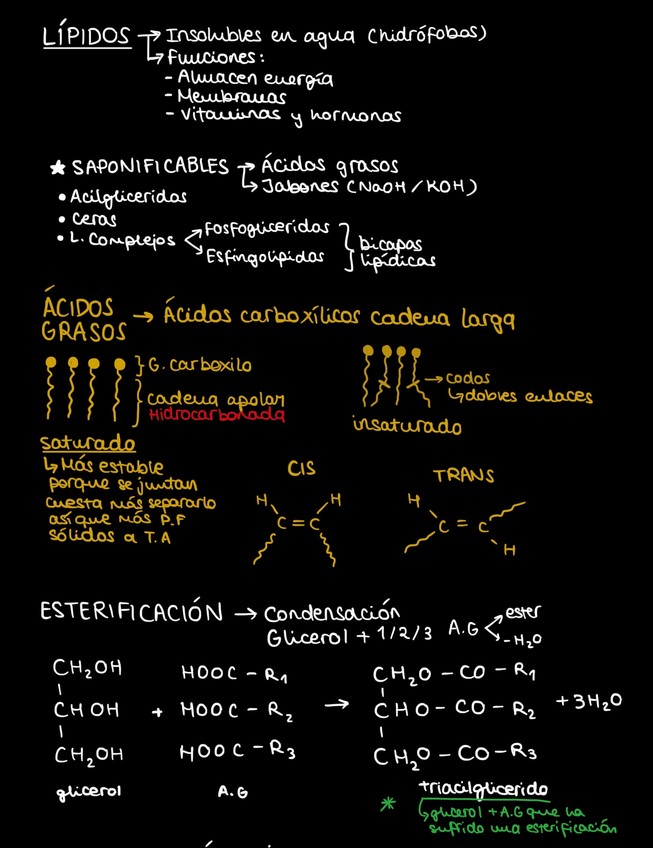 LÍPIDOS → Insolubles en agua (hidrófobos)
↳ Funciones:
- Almacen energía
- Membranas
- Vitaminas y hormonas
★ SAPONIFICABLES → Ácidos grasos
↳ Jabones (NaOH / KOH)
• Acilgliceridos
• Ceras
• L. Complejos
Fosfogliceridos
Esfingolípidos
bicapas
lipídicas
ÁCIDOS
GRASOS → Ácidos carboxílicos cadena larga
G. carboxilo
cadena apolar
Hidrocarbonada
→ codos
↳ dobles enlaces
insaturado
saturado
↳ Más estable
porque se juntan
cuesta más separarlo
así que más P.F
sólidos a T.A
CIS
H H
C = C
TRANS
H
C = C
H
ESTERIFICACIÓN → Condensación
Glicerol + 1/2/3 A.G
ester
- H₂O
CH₂OH HOOC - R₁ CH₂O - CO - R₁
CHOH + HOOC - R₂ → CHO - CO - R₂ + 3H₂O
CH₂OH HOOC - R₃ CH₂O - CO - R₃
glicerol A.G triacilglicerido
* ↳ glicerol + A.G que ha
sufrido una esterificación